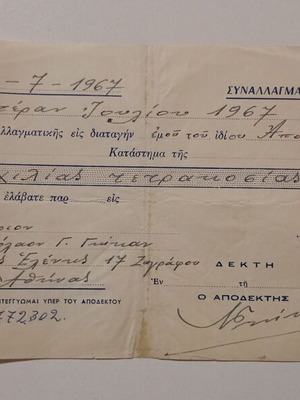 -7-1967 ΣΥΝΑΛΛΑΓΜΑ
τέραν Ἰουλίου 1967
λλαγματικῆς εἰς διαταγήν ἐμοῦ τοῦ ἰδίου Ἀπο
Κατάστημα τῆς
χιλίας τετρακοσίας
ἐλάβατε παρ εἰς
ριον
όλαον Γ. Γιώκαν
ς Ἑλένης 17 Ζωγράφου ΔΕΚΤΗ
Ἀθήνας Ἐν τῇ
ΙΤΕΓΓΥΩΜΑΙ ΥΠΕΡ ΤΟΥ ΑΠΟΔΕΚΤΟΥ Ο ΑΠΟΔΕΚΤΗΣ
772302.